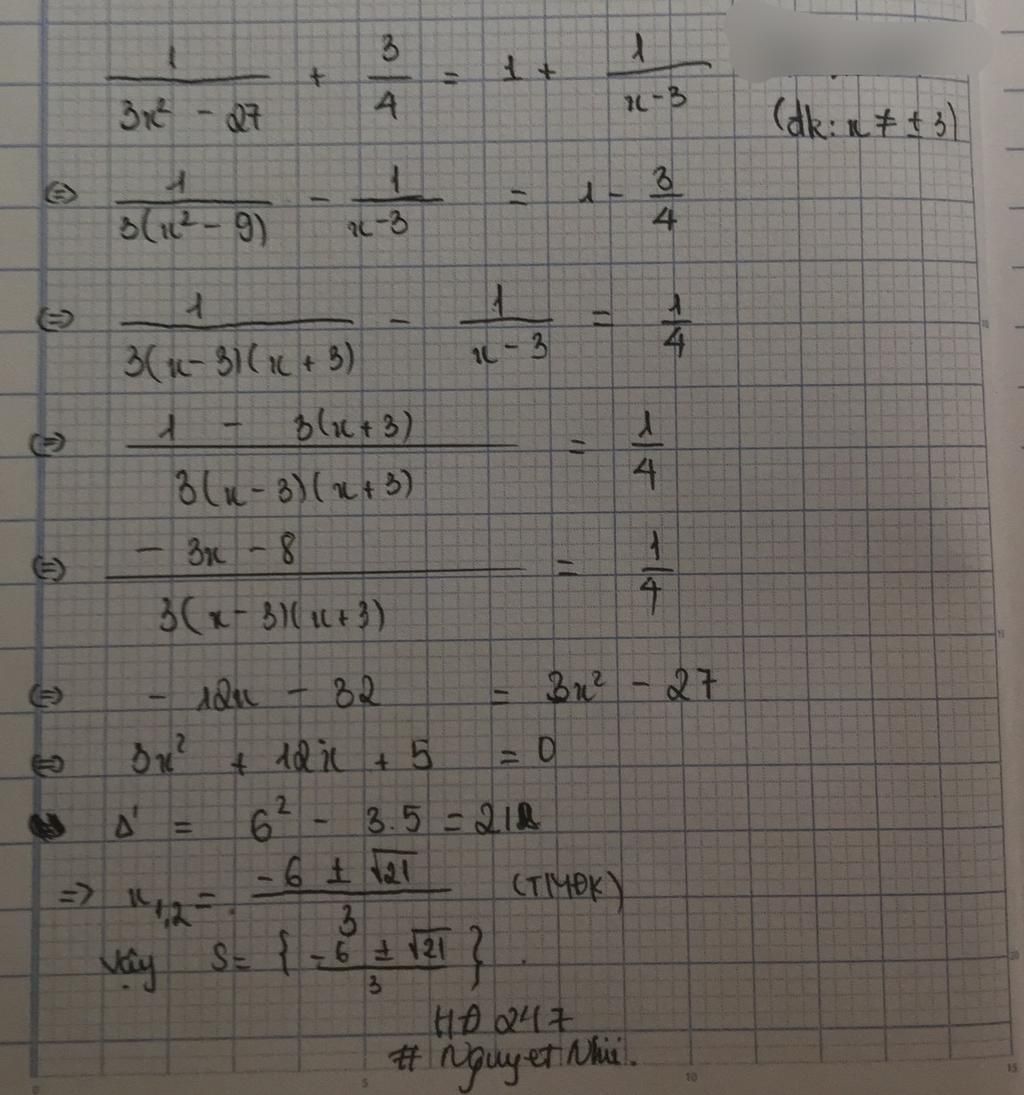 1/(3x² - 27) + 3/4 = 1 + 1/(x-3)
(đk: x ≠ ± 3)
⇔ 1/(3(x² - 9)) - 1/(x-3) = 1 - 3/4
⇔ 1/(3(x-3)(x+3)) - 1/(x-3) = 1/4
⇔ (1 - 3(x+3))/(3(x-3)(x+3)) = 1/4
⇔ (-3x - 8)/(3(x-3)(x+3)) = 1/4
⇔ -12x - 32 = 3x² - 27
⇔ 3x² + 12x + 5 = 0
Δ' = 6² - 3.5 = 21
=> x₁,₂ = (-6 ± √21)/3 (TMĐK)
Vậy S = { (-6 ± √21)/3 }.
HĐ 247
# Nguyet Nhii.
0 5 10 15